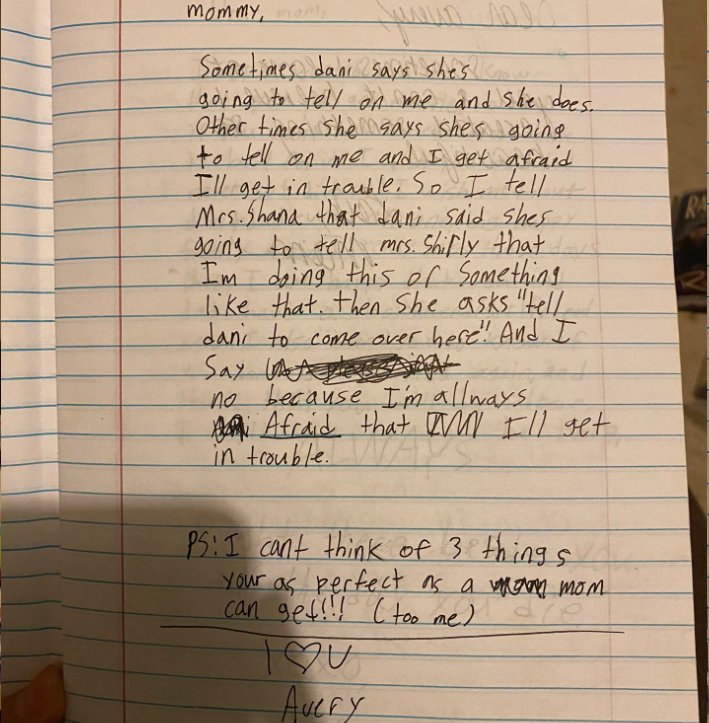 mommy,
Sometimes dani says she's
going to tell on me and she does.
Other times she says shes going
to tell on me and I get afraid
I'll get in trouble. So I tell
Mrs. Shana that dani said shes
going to tell mrs. Shifly that
Im doing this or Something
like that. then She asks "tell
dani to come over here". And I
Say
no because I'm allways
Afraid that I'll get
in trouble.
PS: I cant think of 3 things
your as perfect as a mom
can get!!! (too me)
I ♡ U
Avery